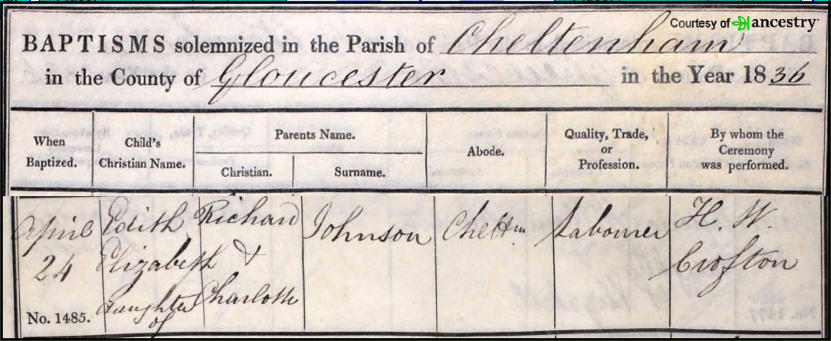 Courtesy of ancestry
BAPTISMS solemnized in the Parish of Cheltenham
in the County of Gloucester in the Year 1836
When Baptized.
Child's Christian Name.
Parents Name.
Christian.
Surname.
Abode.
Quality, Trade, or Profession.
By whom the Ceremony was performed.
April
24
No. 1485.
Edith
Elizabeth
daughter
of
Richard
&
Charlotte
Johnson
Cheltm
Labourer
H. W.
Crofton